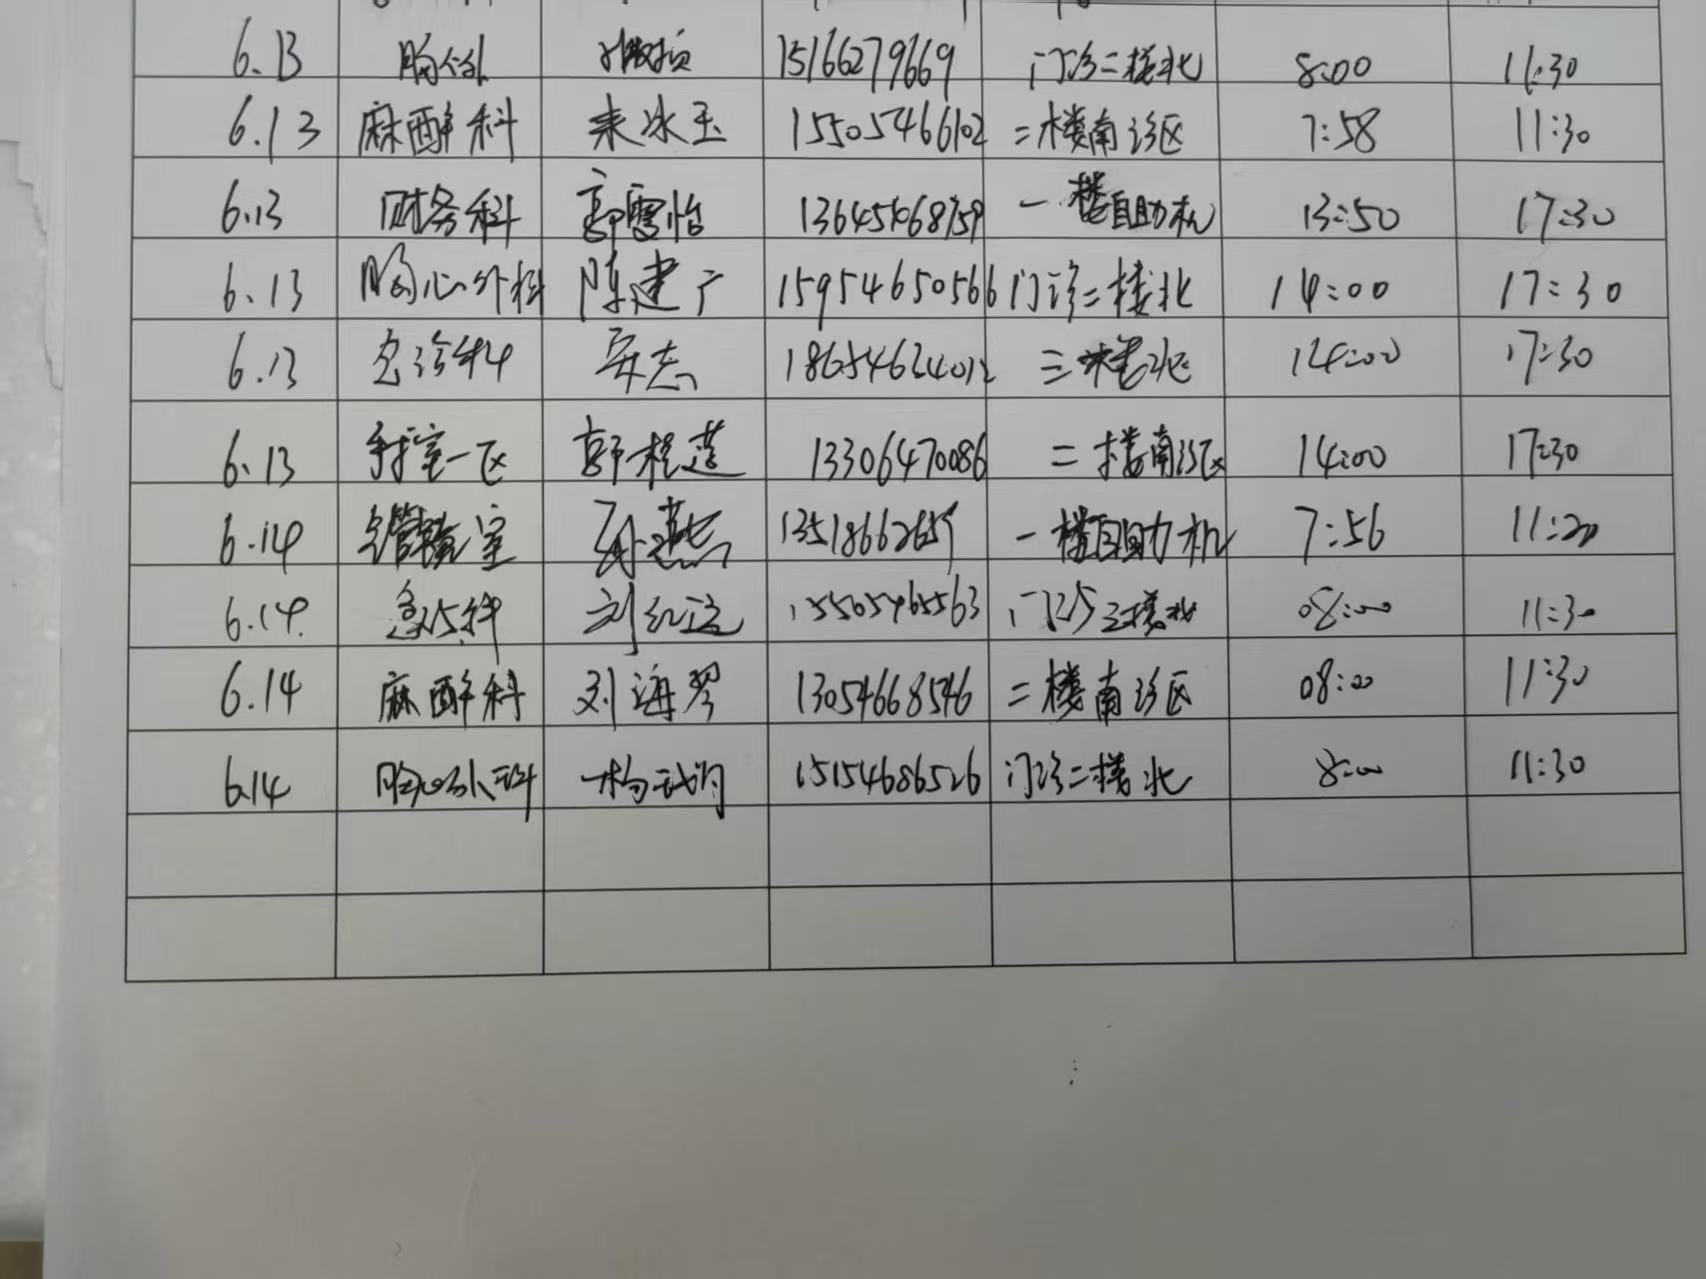 6.13 胸心外 15166279669 门诊二楼北 8:00 11:30
6.13 麻醉科 来冰玉 15505466102 二楼南诊区 7:58 11:30
6.13 财务科 郭雪怡 一楼自助机 13:50 17:30
6.13 胸心外科 陈建广 15954650566 门诊二楼北 14:00 17:30
6.13 急诊科 安志 18654624012 三楼北区 14:00 17:30
6.13 手术室一区 郭程莲 13306470086 二楼南诊区 14:00 17:30
6.14 室 孙燕 13518662659 一楼自助机 7:56 11:20
6.14. 急诊科 刘红运 15505465563 门诊三楼北 08:00 11:30
6.14 麻醉科 刘海琴 13054668546 二楼南诊区 08:00 11:30
6.14 胸心外科 杨 15154686526 门诊二楼北 8:00 11:30